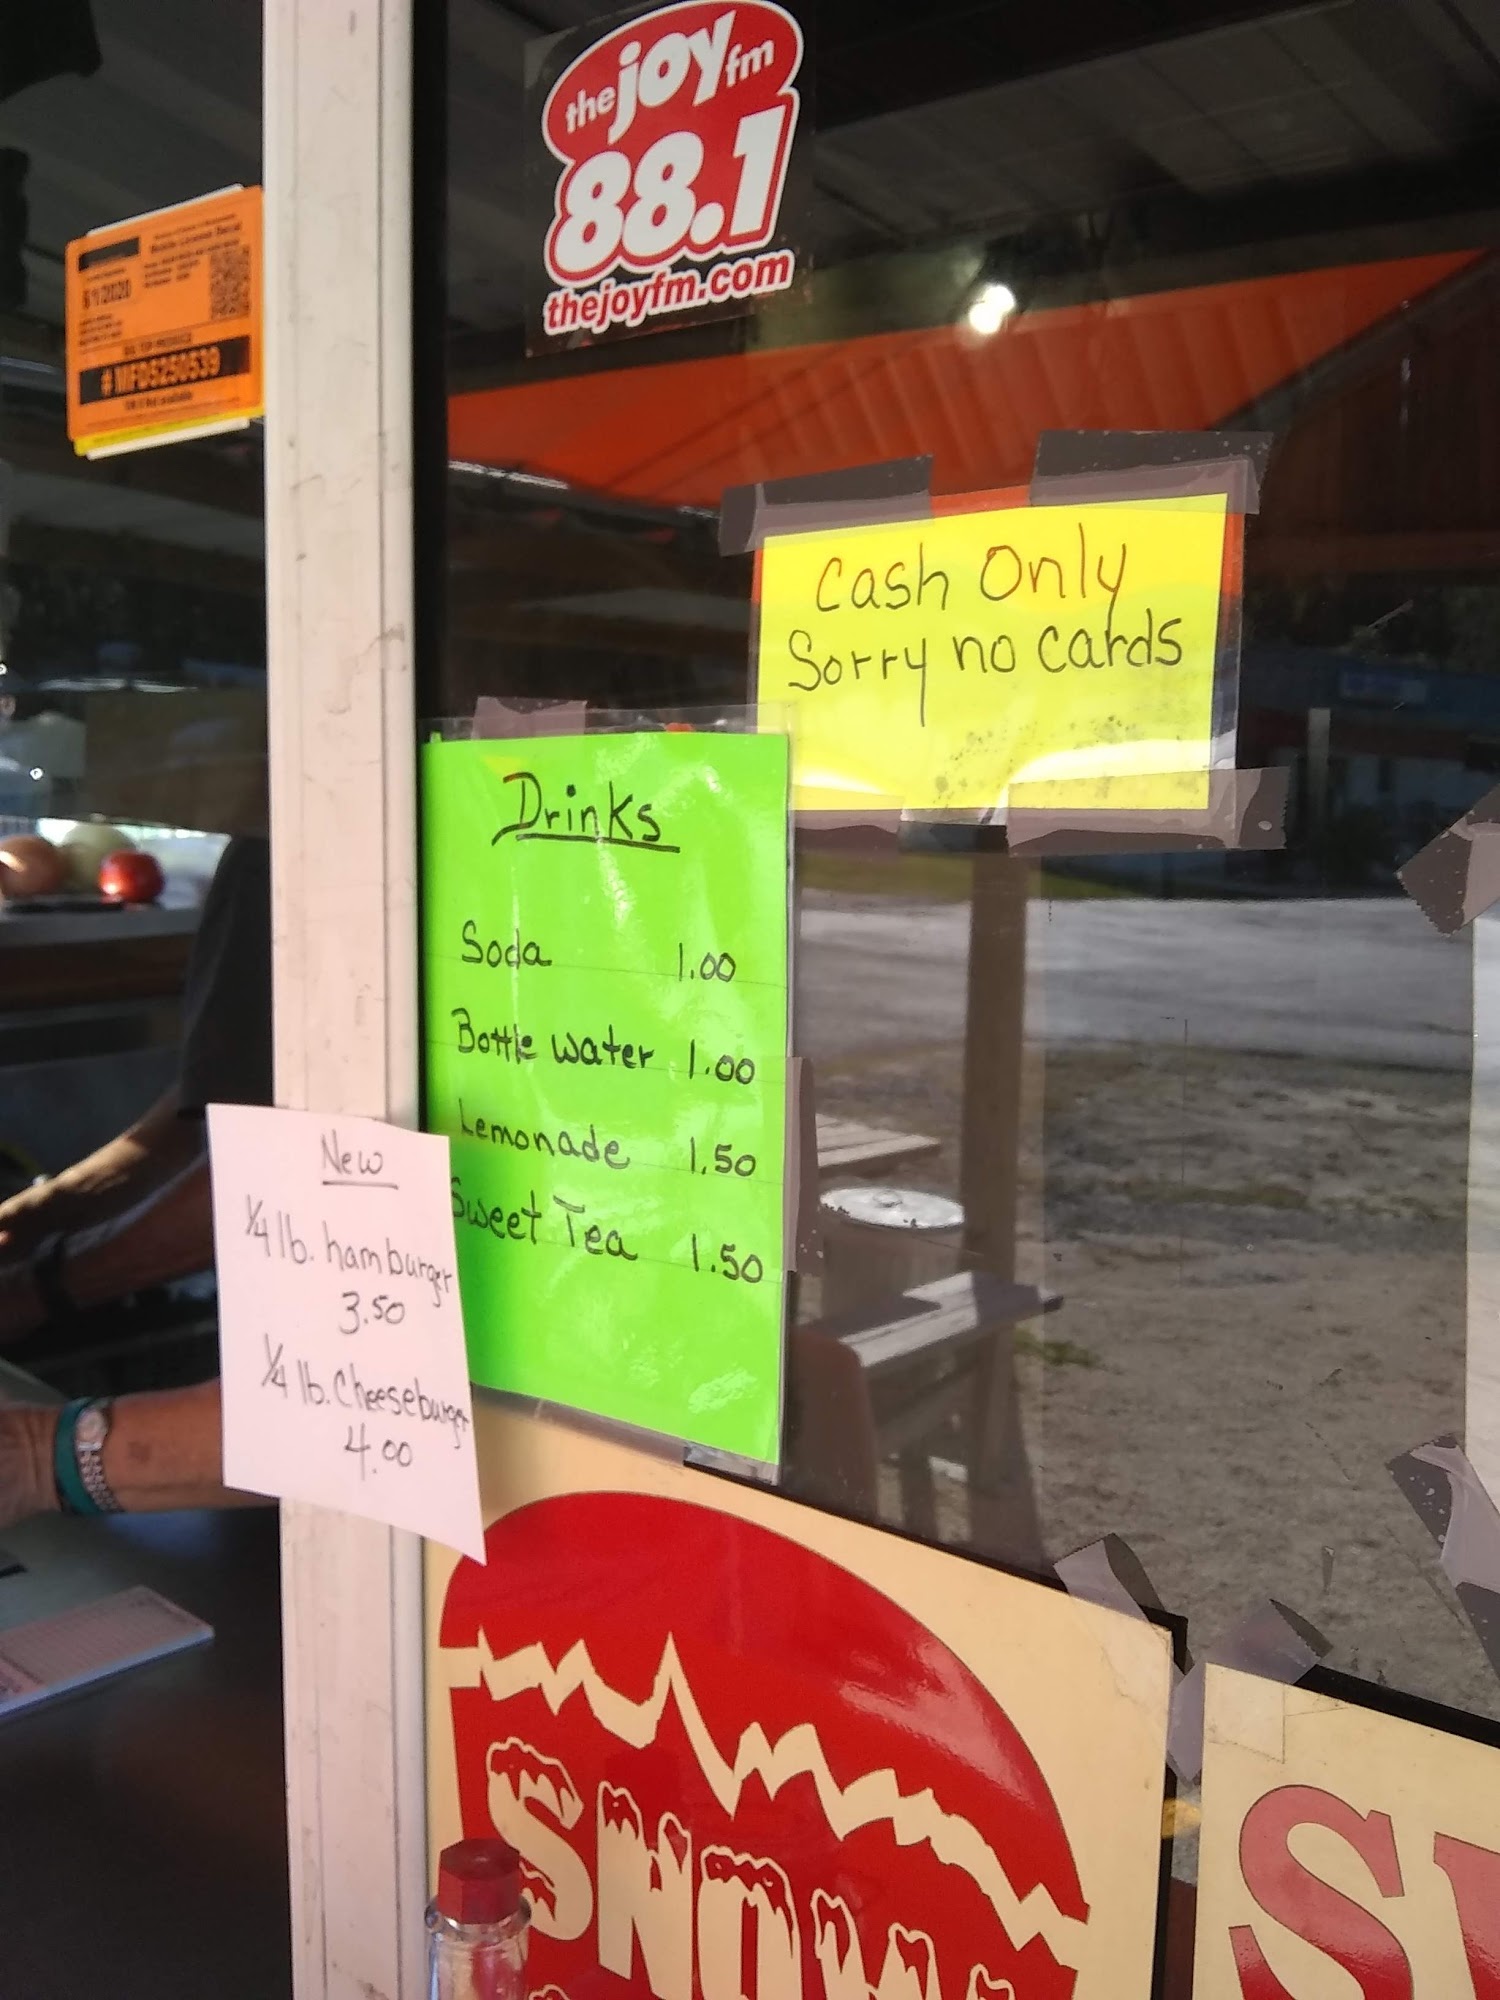 the joy fm
88.1
thejoyfm.com
6/1/2020
#MFD5250539
Cash Only
Sorry no cards
Drinks
Soda 1.00
Bottle water 1.00
Lemonade 1.50
Sweet Tea 1.50
New
1/4 lb. hamburger
3.50
1/4 lb. Cheeseburger
4.00
SNOW
S